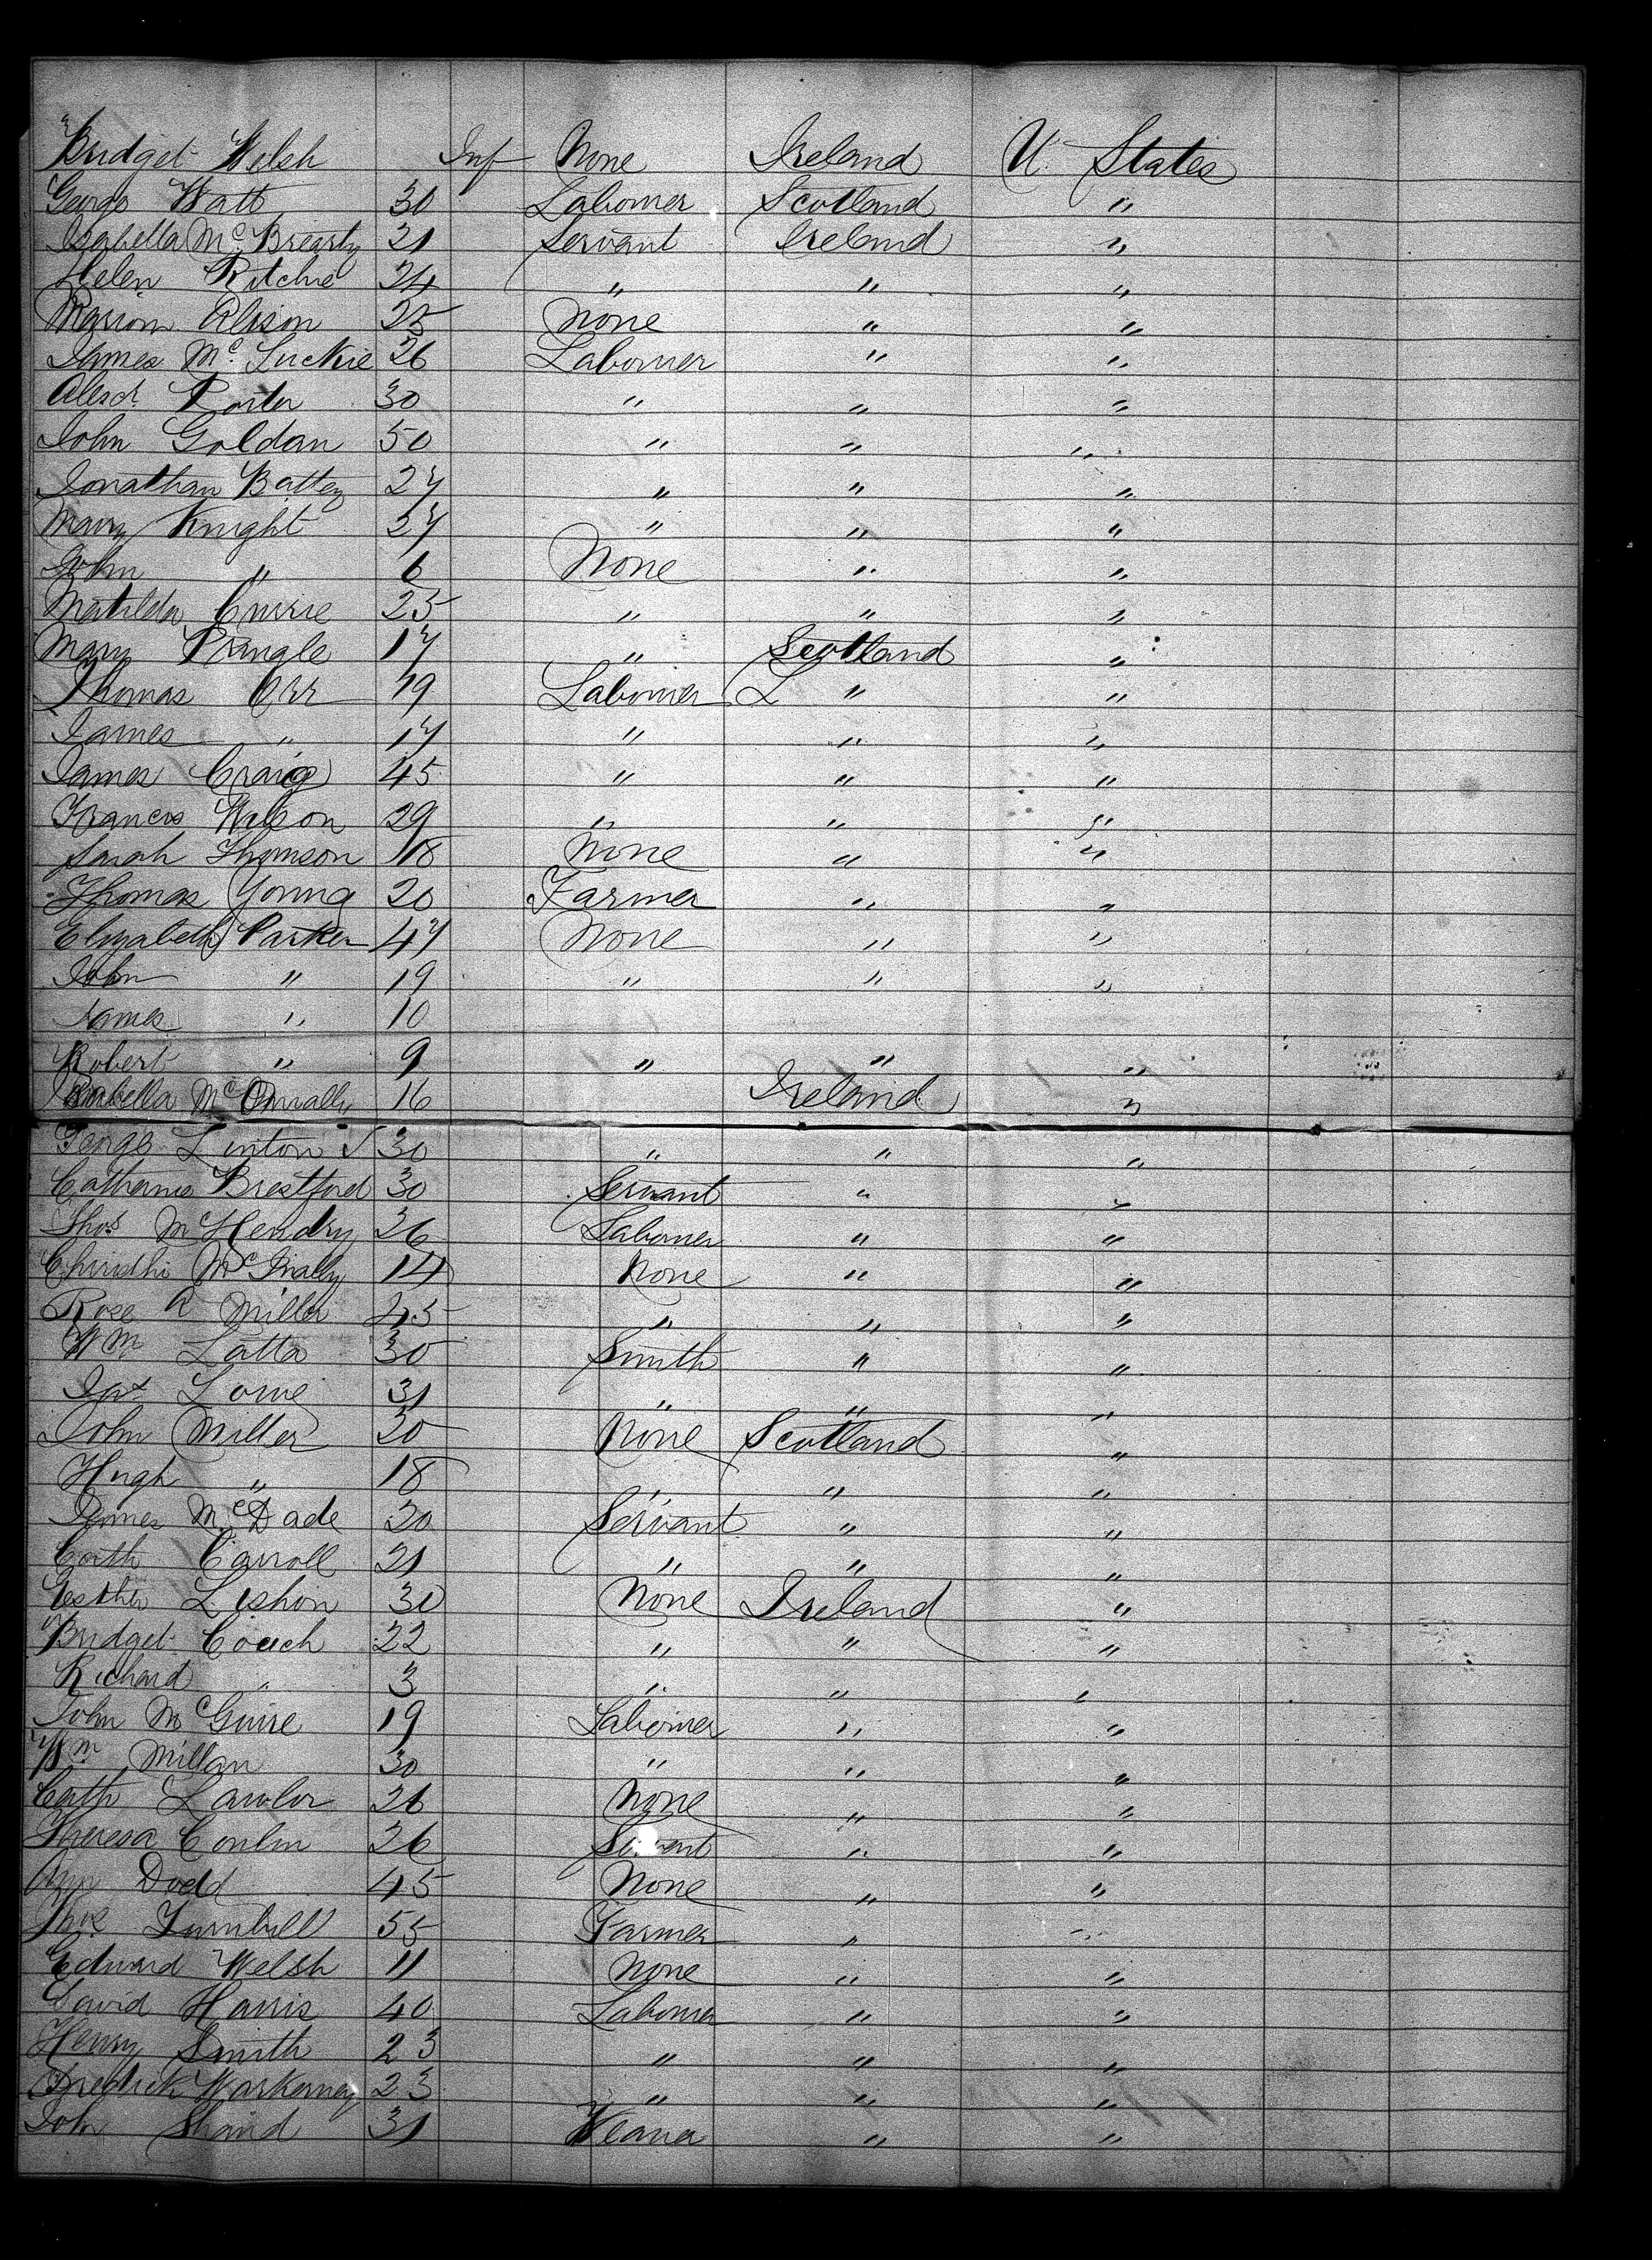 Bridget Welsh Inf None Ireland U. States
George Watt 30 Labourer Scotland "
Isabella McBrearty 21 Servant Ireland "
Helen Ritchie 24 " " "
Marion Alison 25 None " "
James Mc. Luckie 26 Labourer " "
Alexd. Porter 30 " " "
John Goldan 50 " " "
Jonathan Battey 27 " " "
Mary Knight 27 " " "
John " 6 None " "
Matilda Currie 25 " " "
Mary Pringle 17 " Scotland "
Thomas Orr 19 Labourer " "
James " 17 " " "
James Craig 45 " " "
Francis Wilson 29 " " "
Sarah Thomson 18 None " "
Thomas Young 20 Farmer " "
Elizabeth Parker 47 None " "
John " 19 " " "
James " 10
Robert " 9 " " "
Isabella 16 Ireland "
George Linton 30 " " "
Catharine Brestford 30 Servant " "
Thos McHendry 26 Labourer " "
Mc 14 None " "
Rose A Miller 45 " " "
Wm Latta 30 Smith " "
Jas Lowe 31 " " "
John Miller 20 None Scotland "
Hugh " 18 " " "
James McDade 20 Servant " "
Cath Carroll 21 " " "
Esther Lishon 30 None Ireland "
Bridget Couch 22 " " "
Richard " 3 " " "
John McGuire 19 Labourer " "
Wm. Millan 30 " " "
Cath Lawlor 26 None " "
Theresa Conlin 26 Servant " "
Ann Dodd 45 None " "
Thos. Turnbull 55 Farmer " "
Edward Welsh 11 None " "
David Harris 40 Labourer " "
Henry Smith 23 " " "
Fredrick 23 " " "
John Shand 31 " "